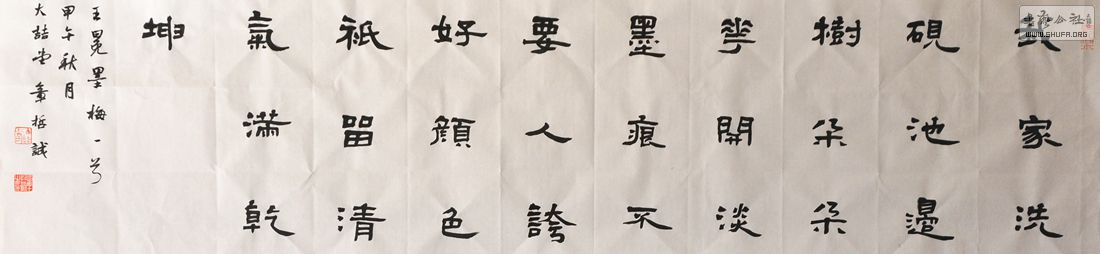 我家洗
硯池邊
樹朵朵
華開淡
墨痕不
要人誇
好顏色
祇留清
氣滿乾
坤
王冕墨梅一首
甲午秋月
大喆堂章哲誠
书法公社
WWW.SHUFA.ORG